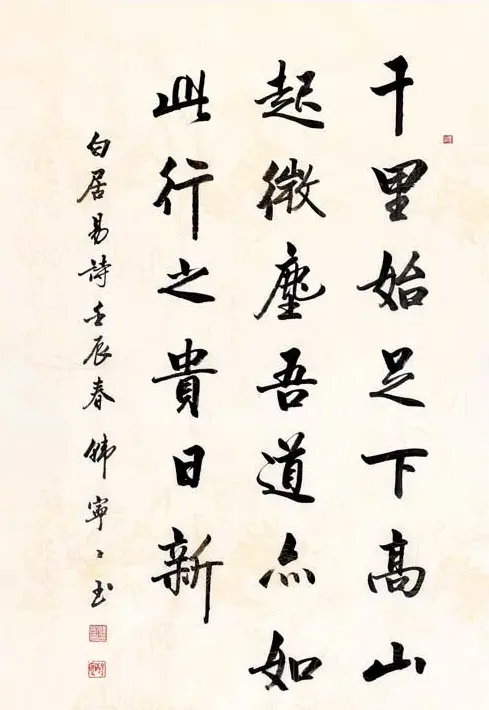 千里始足下高山
起微塵吾道亦如
此行之貴日新
白居易詩壬辰春韩寧〻书